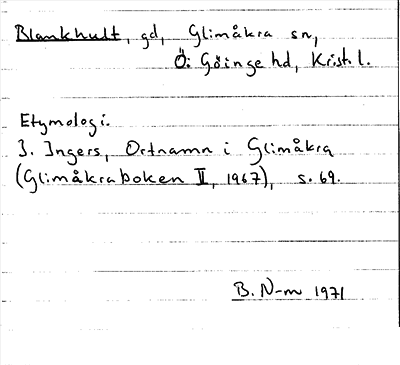 Blankhult, gd, Glimåkra sn,
Ö. Göinge hd, Krist. l.
Etymologi.
I. Ingers, Ortnamn i Glimåkra
(Glimåkraboken II, 1967), s. 69.
B. N-m 1971